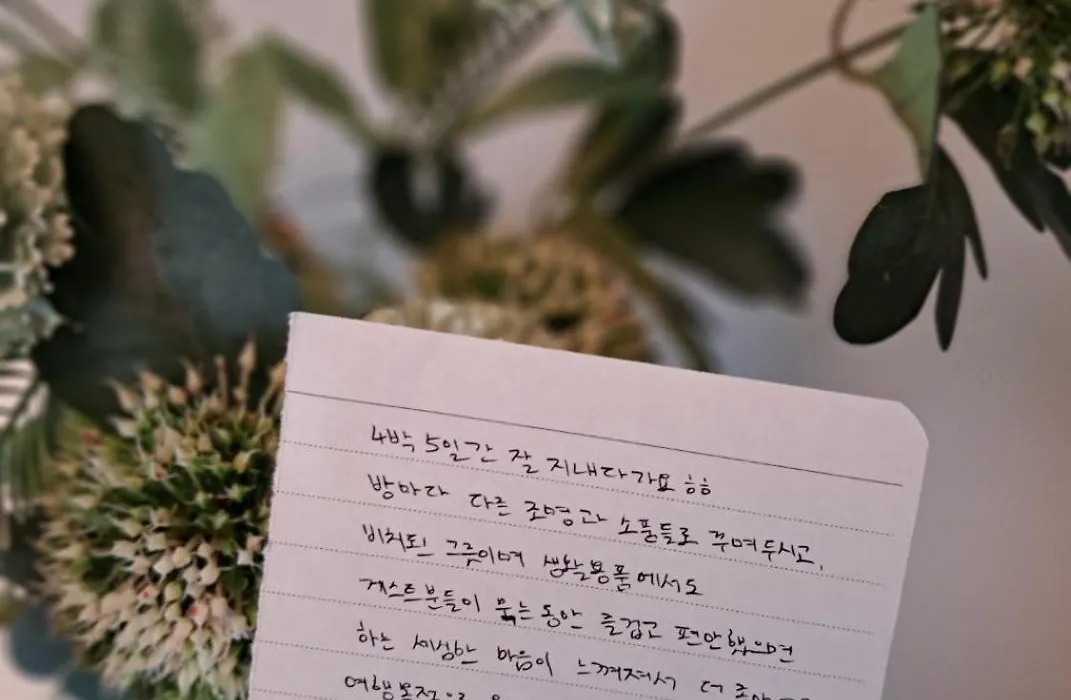 4박 5일간 잘 지내다가요 ㅎㅎ
방마다 다른 조명과 소품들로 꾸며두시고,
비치된 그릇이며 생활용품에서도
게스트분들이 묵는동안 즐겁고 편안했으면
하는 세심한 마음이 느껴져서 더